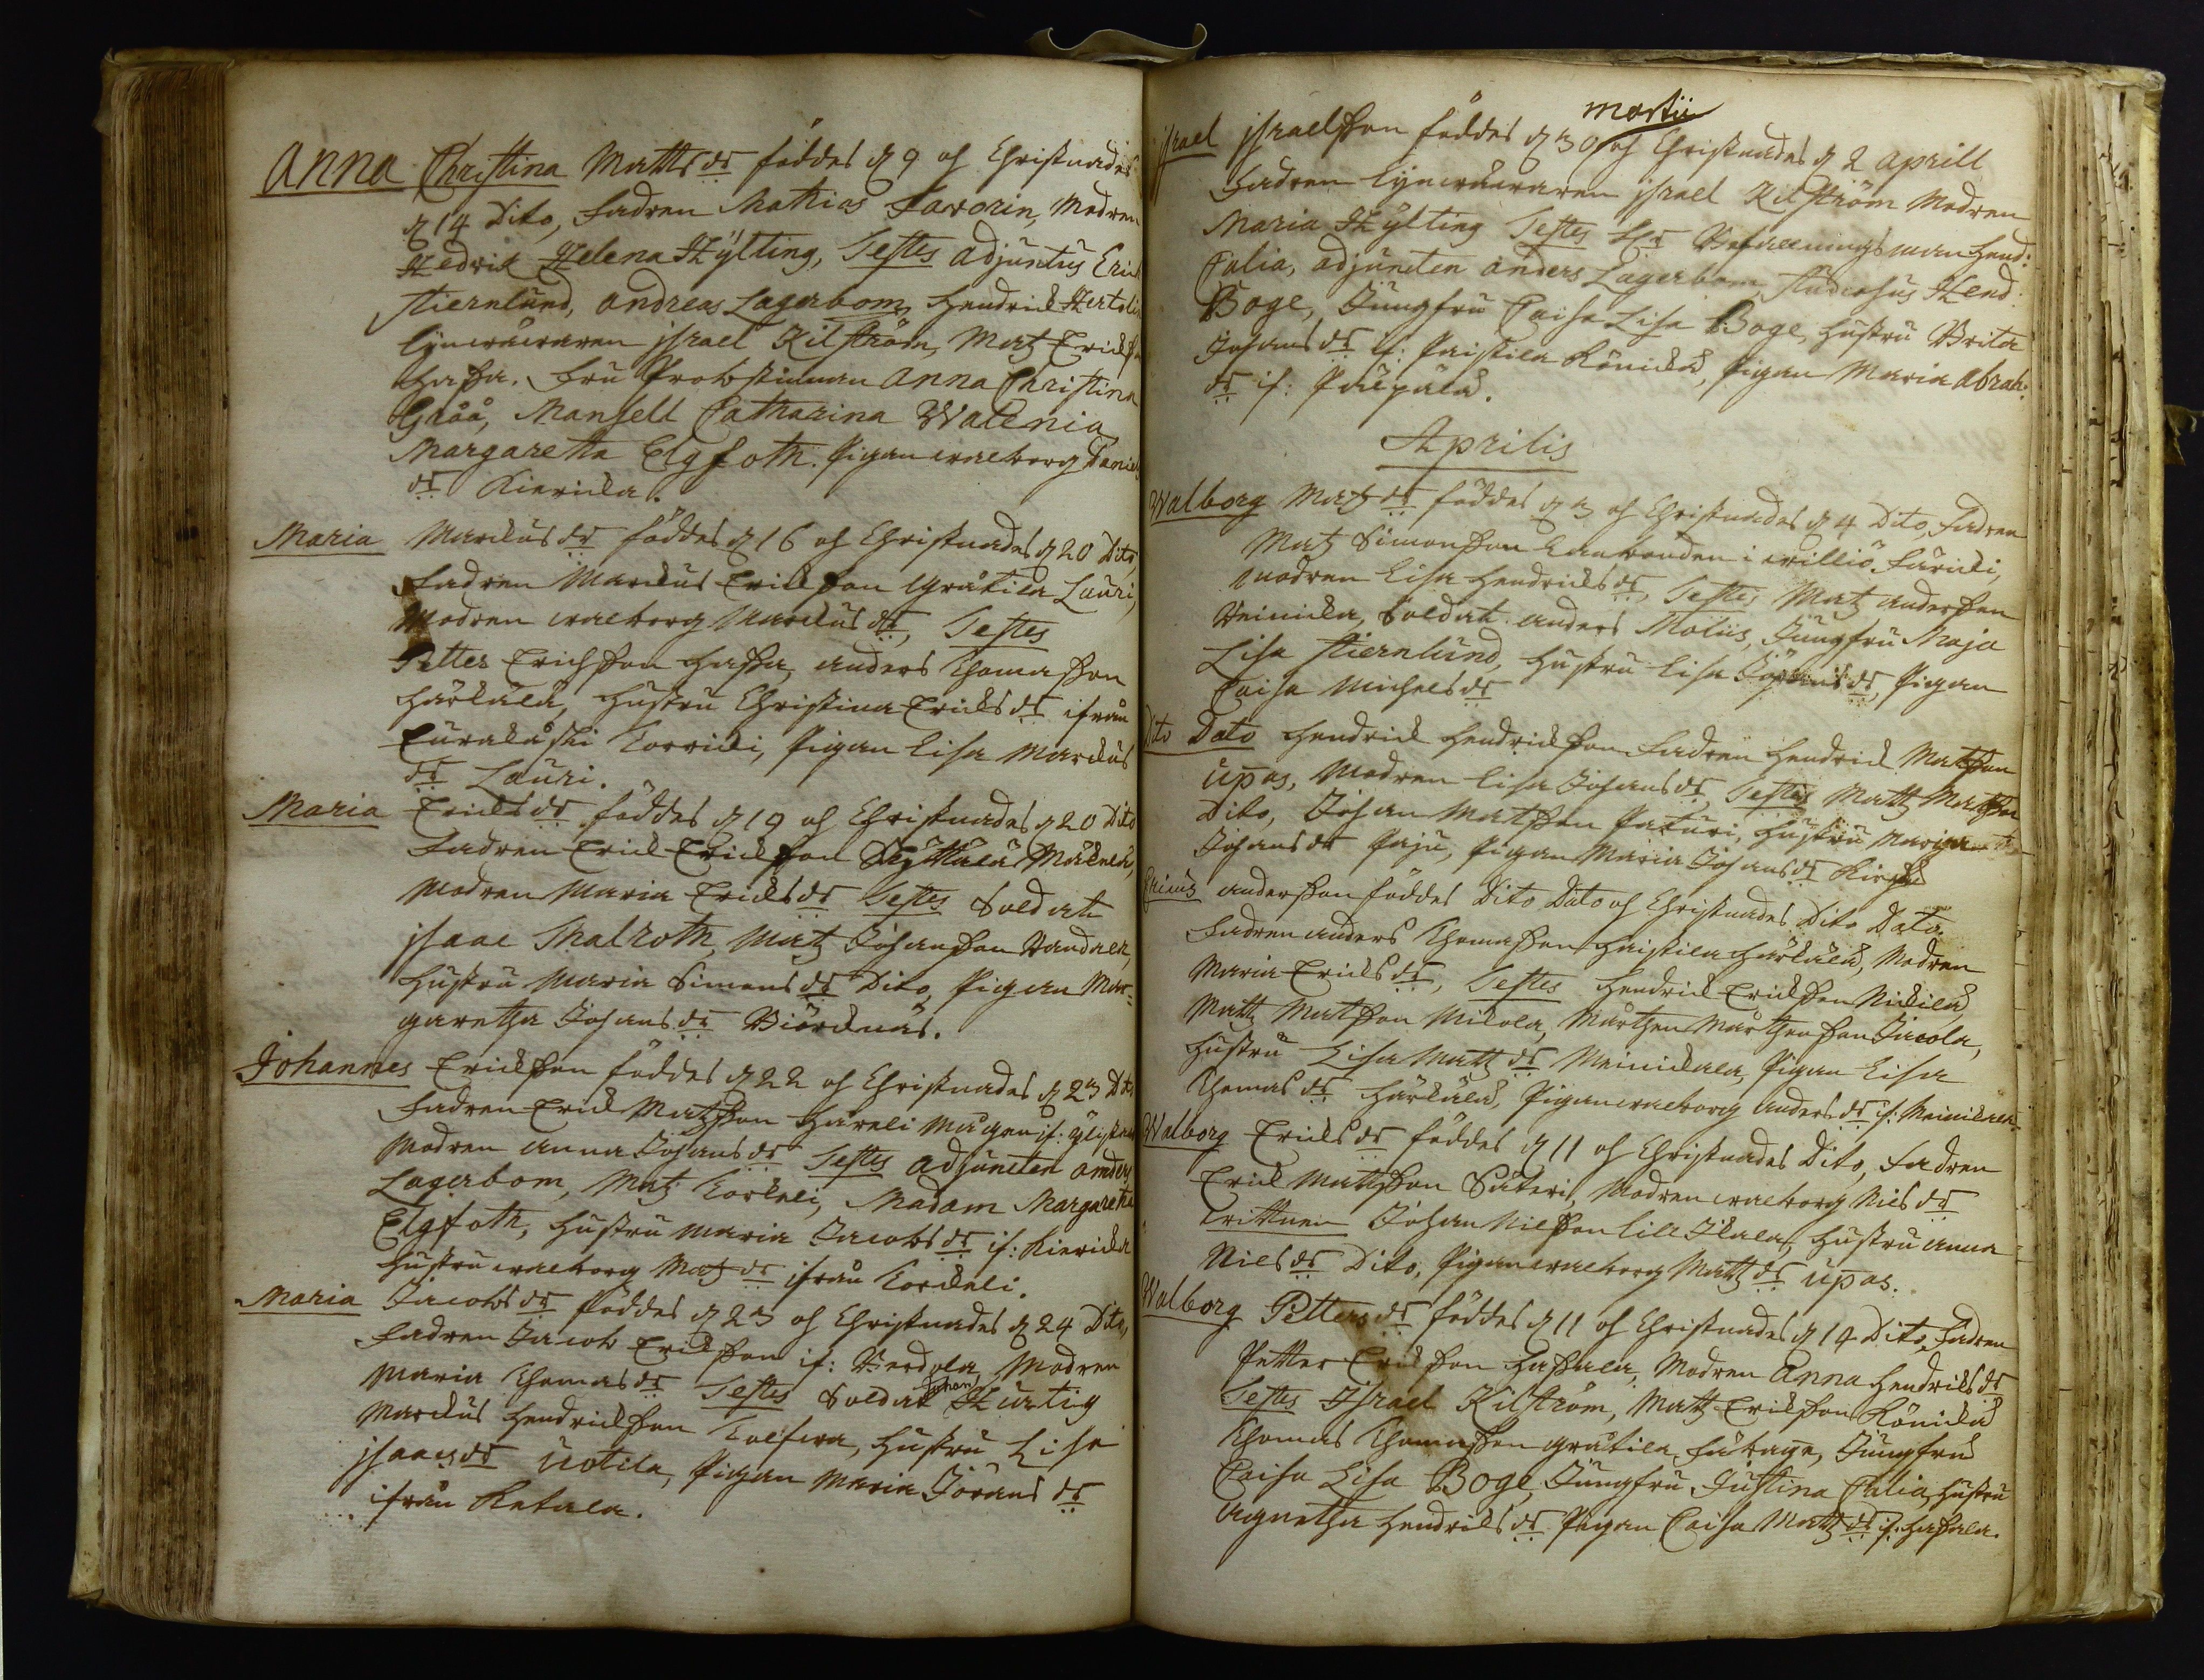 Anna Christina Mattsdr föddes d 9 oh Christnades
d 14 Dito, Fadren Mathias Favorin, Modren
Hedvik Helena Hÿlting, Testes Adjuntus Eric
Stiernlund, Andreas Lagerbom, Hendrick Hertelin
Israel Kilström, Matz Ericks
Hassa. Fru Probstinnan Anna Christina
Gråå, Mansell Catharina Walenia
Margaretta Elgfoth. Pigan walborg Daniels
dr Kiericka.
Maria Marckusdr föddes d 16 oh Christnades d 20 Dito,
Fadren Marckus Erickson Gråtila Lauri,
Modren walborg Marckusdr, Testes
Petter Erichsson Hassa, anders Thomasson
Härkälä, Hustru Christina Ericksdr ifrån
Korricki, Pigan Lisa Marckus
dr Lauri.
Maria Ericksdr föddes d 19 oh Christnades d 20 Dito
Fadren Erick Erickson Skÿttälä Mäkelä,
Modren Maria Ericksdr Testes Soldat
Isaac Malroth, Matz Johansson Vandala,
Hustru Maria Simonsdr Dito, Pigan Mar-
garetha Johansdr Biörcknäs.
Johannes Erickson föddes d 22 oh Christnades d 23 Dito
Fadren Erick Matzson Hareli if:
Modren Anna Johansdr Testes Adjuncten Anders
Lagerbom, Matz Korkeli, Madam Margareta
Elgfoth, Hustru Maria Jacobsdr if: Kiericka
Hustru walborg Matzdr ifrån Korckeli.
Maria Jacobsdr föddes d 23 oh Christnades d 24 Dito,
Fadren Jacob Erickson if: Verdola, Modren
Maria Thomasdr Testes Soldat Johan Hurtig
Marckus Hendrickson, Hustru Lisa
Isaacsdr Uotila, Pigan Maria Jöransdr
ifrån Ketala.
Martii
Israel Israelsson föddes d 30 oh Christnades d 2 Aprill
Fadren Israel Kilström Modren
Maria Hÿlting Testes Hr Befallningsman Hend:
Calia, Adjuncten Anders Lagerbom, Studiosus Hend:
Boge, Jungfru Caisa Lisa Boge, Hustru Brita
Johansdr if: Paistila Könickä, Pigan Maria Abrah:
dr if:
Aprilis
Walborg Matzdr föddes d 3 oh Christnades d 4 Dito, Fadren
Matz Simonsson Landbonden i,
Modren Lisa Hendricksdr, Testes Matz Andersson
Soldat Anders Moliis, Jungfru Maja
Lisa Stiernlund, Hustru Lisa dr, Pigan
Caisa Michelsdr
Dito Dato Hendrick Hendrickson Fadren Hendrick Matsson
Upas, Modren Lisa Johansdr, Testes Mattz Matsson
Dito, Johan Matsson Paturi, Hustru
Johansdr Paju, Pigan Maria Johansdr
Ericus Andersson föddes Dito Dato oh Christnades Dito Dato.
Fadren Anders Thomasson Haistila Härkälä, Modren
Maria Ericksdr, Testes Hendrick Erickson Nickilä,
Mattz Matsson Mikola, Mårtzen Mårtzensson Jacola,
Hustru Lisa Mattzdr Meinickala, Pigan Lisa
Thomasdr Härkälä, Pigan walborg Andersdr if: Meinickala
Walborg Ericksdr föddes d 11 oh Christnades Dito, Fadren
Erick Mattsson Säteri, Modren walborg Nilsdr
wittnen Johan Nilsson Lill Ikala, Hustru Anna
Nilsdr Dito, Pigan walborg Mattzdr Upas.
Walborg Pettersdr föddes d 11 oh Christnades d 14 Dito, Fadren
Petter Erickson Hassala, Modren Anna Hendricksdr
Testes Israel Kilström, Mattz Erickson Könickä
Thomas Thomasson Gråtila, Jungfru
Caisa Lisa Boge, Jungfru Justina Calia, Hustru
Agnetha Hendricksdr Pigan Caisa Mattzdr if: Hassala.